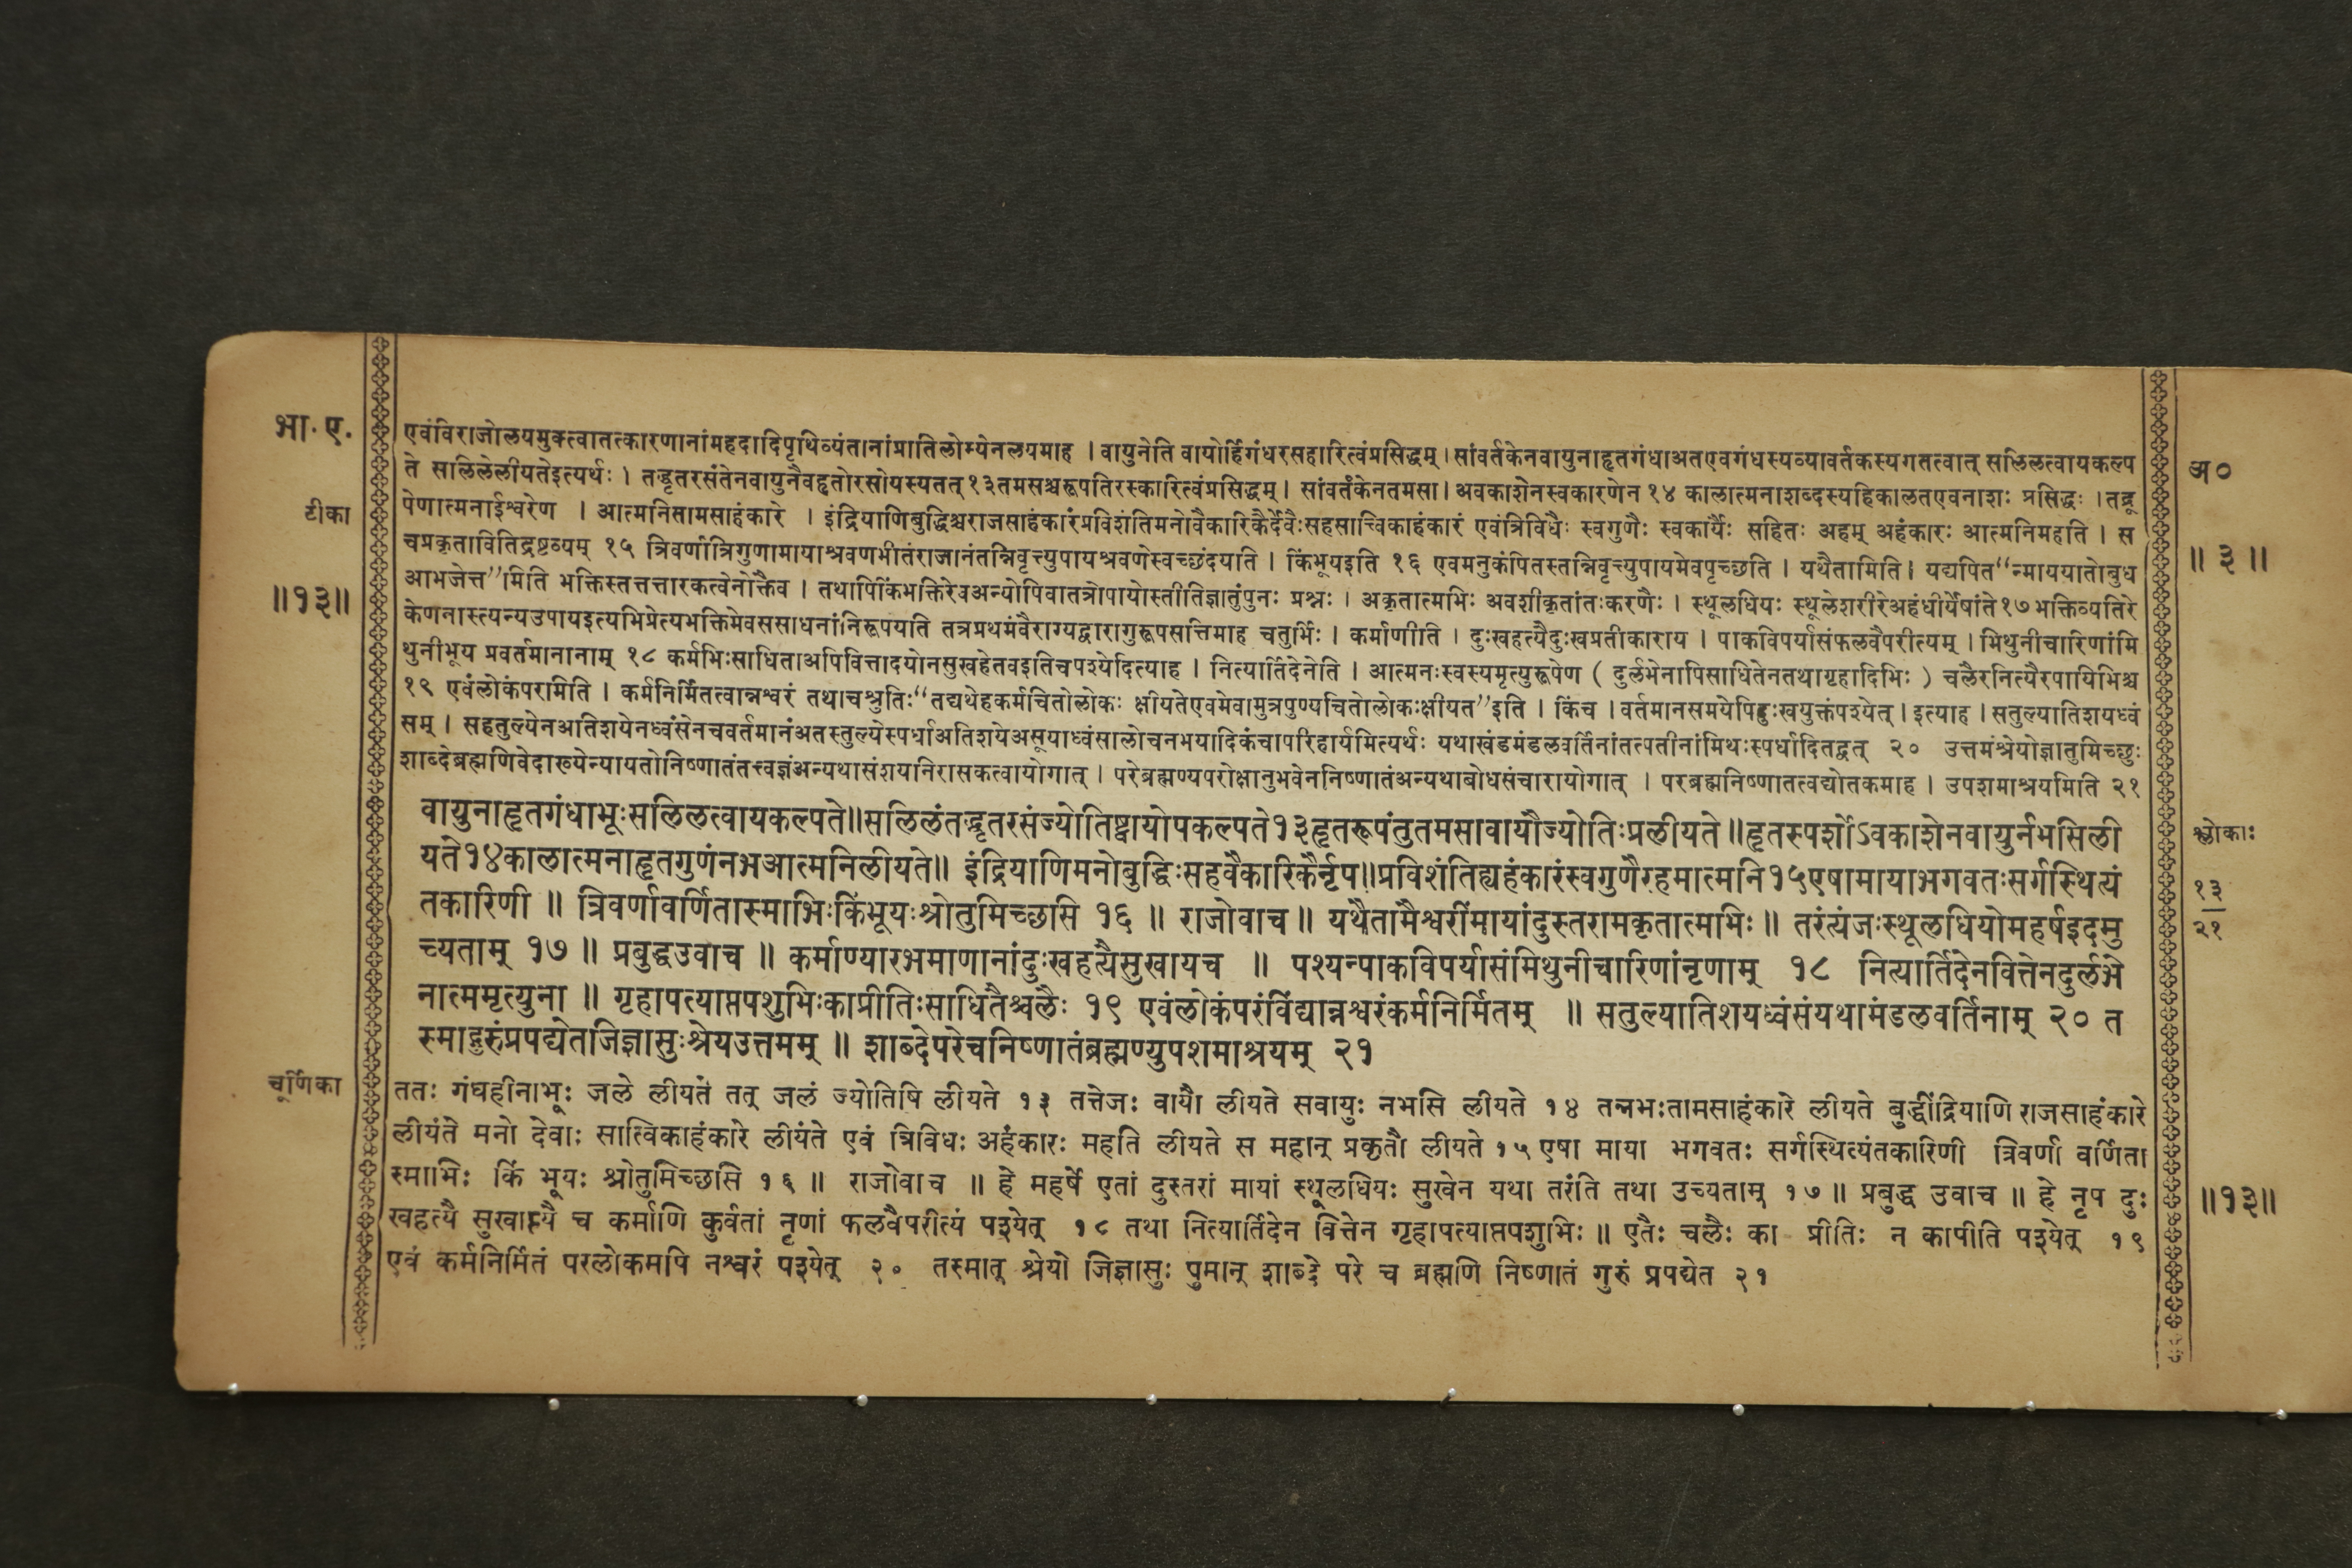 भा. ए.
अ०
टीका
॥ ३ ॥
॥१३॥
एवंविराजोलयमुक्त्वातत्कारणानांमहदादिपृथिव्यंतानांप्रातिलोम्येनलयमाह । वायुनेति वायोर्हिगंधरसहारित्वंप्रसिद्धम् । सांवर्तकेनवायुनाहृतगंधाअतएवगंधस्यव्यावर्तकस्यगतत्वात् सलिलत्वायकल्प
ते सलिलेलीयतेइत्यर्थः । तद्धृतरसंतेनवायुनैवहृतोरसोयस्यतत् १३तमसश्चरूपतिरस्कारित्वंप्रसिद्धम् । सांवर्तकेनतमसा । अवकाशेनस्वकारणेन १४ कालात्मनाशब्दस्यहिकालतएवनाशः प्रसिद्धः । तद्रू
पेणात्मनाईश्वरेण । आत्मनितामसाहंकारे । इंद्रियाणिबुद्धिश्चराजसाहंकारंप्रविशंतिमनोवैकारिकैर्देवैःसहसात्त्विकाहंकारं एवंत्रिविधैः स्वगुणैः स्वकार्यैः सहितः अहम् अहंकारः आत्मनिमहति । स
चप्रकृतावितिद्रष्टव्यम् १५ त्रिवर्णात्रिगुणामायाश्रवणभीतंराजानंतन्निवृत्त्युपायश्रवणेस्वच्छंदयति । किंभूयइति १६ एवमनुकंपितस्तन्निवृत्त्युपायमेवपृच्छति । यथैतामिति । यद्यपित“न्माययातोबुध
आभजेत्त”मिति भक्तिस्तत्तत्तारकत्वेनोक्तैव । तथापिकिंभक्तिरेवअन्योपिवातत्रोपायोस्तीतिज्ञातुंपुनः प्रश्नः । अकृतात्मभिः अवशीकृतांतःकरणैः । स्थूलधियः स्थूलेशरीरेअहंधीर्येषांते१७भक्तिव्यतिरे
केणनास्त्यन्यउपायइत्यभिप्रेत्यभक्तिमेवससाधनांनिरूपयति तत्रप्रथमंवैराग्यद्वारागुरूपसत्तिमाह चतुर्भिः । कर्माणीति । दुःखहत्यैदुःखप्रतीकाराय । पाकविपर्यासंफलवैपरीत्यम् । मिथुनीचारिणांमि
थुनीभूय प्रवर्तमानानाम् १८ कर्मभिःसाधिताअपिवित्तादयोनसुखहेतवइतिचपश्येदित्याह । नित्यार्तिदेनेति । आत्मनःस्वस्यमृत्युरूपेण ( दुर्लभेनापिसाधितेनतथागृहादिभिः ) चलैरनित्यैरपायिभिश्च
१९ एवंलोकंपरामिति । कर्मनिर्मितत्वान्नश्वरं तथाचश्रुतिः“तद्यथेहकर्मचितोलोकः क्षीयतेएवमेवामुत्रपुण्यचितोलोकःक्षीयत”इति । किंच । वर्तमानसमयेपिदुःखयुक्तंपश्येत् । इत्याह । सतुल्यातिशयध्वं
सम् । सहतुल्येनअतिशयेनध्वंसेनचवर्तमानंअतस्तुल्येस्पर्धाअतिशयेअसूयाध्वंसालोचनभयादिकंचापरिहार्यमित्यर्थः यथाखंडमंडलवर्तिनांतत्पतीनांमिथःस्पर्धादितद्वत् २० उत्तमंश्रेयोज्ञातुमिच्छुः
शाब्देब्रह्मणिवेदाख्येन्यायतोनिष्णातंतत्त्वज्ञंअन्यथासंशयनिरासकत्वायोगात् । परेब्रह्मण्यपरोक्षानुभवेननिष्णातंअन्यथाबोधसंचारायोगात् । परब्रह्मनिष्णातत्वद्योतकमाह । उपशमाश्रयमिति २१
वायुनाहृतगंधाभूःसलिलत्वायकल्पते॥सलिलंतद्धृतरसंज्योतिष्ट्वायोपकल्पते१३हृतरूपंतुतमसावायौज्योतिःप्रलीयते॥हृतस्पर्शोऽवकाशेनवायुर्नभसिली
यते१४कालात्मनाहृतगुणंनभआत्मनिलीयते॥ इंद्रियाणिमनोबुद्धिःसहवैकारिकैर्नृप॥प्रविशंतिह्यहंकारंस्वगुणैरहमात्मनि१५एषामायाभगवतःसर्गस्थित्यं
तकारिणी ॥ त्रिवर्णावर्णितास्माभिःकिंभूयःश्रोतुमिच्छसि १६ ॥ राजोवाच ॥ यथैतामैश्वरींमायांदुस्तरामकृतात्मभिः ॥ तरंत्यंजःस्थूलधियोमहर्षइदमु
च्यताम् १७ ॥ प्रबुद्धउवाच ॥ कर्माण्यारभमाणानांदुःखहत्यैसुखायच ॥ पश्येत्पाकविपर्यासंमिथुनीचारिणांनृणाम् १८ नित्यार्तिदेनवित्तेनदुर्लभे
नात्ममृत्युना ॥ गृहापत्याप्तपशुभिःकाप्रीतिःसाधितैश्चलैः १९ एवंलोकंपरंविद्यान्नश्वरंकर्मनिर्मितम् ॥ सतुल्यातिशयध्वंसंयथामंडलवर्तिनाम् २० त
स्माद्गुरुंप्रपद्येतजिज्ञासुःश्रेयउत्तमम् ॥ शाब्देपरेचनिष्णातंब्रह्मण्युपशमाश्रयम् २१
श्लोकाः
१३
२१
चूर्णिका
ततः गंधहीनाभूः जले लीयते तत् जलं ज्योतिषि लीयते १३ तत्तेजः वायौ लीयते सवायुः नभसि लीयते १४ तन्नभःतामसाहंकारे लीयते बुद्धींद्रियाणि राजसाहंकारे
लीयंते मनो देवाः सात्विकाहंकारे लीयंते एवं त्रिविधः अहंकारः महति लीयते स महान् प्रकृतौ लीयते १५ एषा माया भगवतः सर्गस्थित्यंतकारिणी त्रिवर्णा वर्णिता
स्माभिः किं भूयः श्रोतुमिच्छसि १६ ॥ राजोवाच ॥ हे महर्षे एतां दुस्तरां मायां स्थूलधियः सुखेन यथा तरंति तथा उच्यताम् १७ ॥ प्रबुद्ध उवाच ॥ हे नृप दुः
खहत्यै सुखाप्त्यै च कर्माणि कुर्वतां नृणां फलवैपरीत्यं पश्येत् १८ तथा नित्यार्तिदेन वित्तेन गृहापत्याप्तपशुभिः ॥ एतैः चलैः का प्रीतिः न कापीति पश्येत् १९
एवं कर्मनिर्मितं परलोकमपि नश्वरं पश्येत् २० तस्मात् श्रेयो जिज्ञासुः पुमान् शाब्दे परे च ब्रह्मणि निष्णातं गुरुं प्रपद्येत २१
॥१३॥